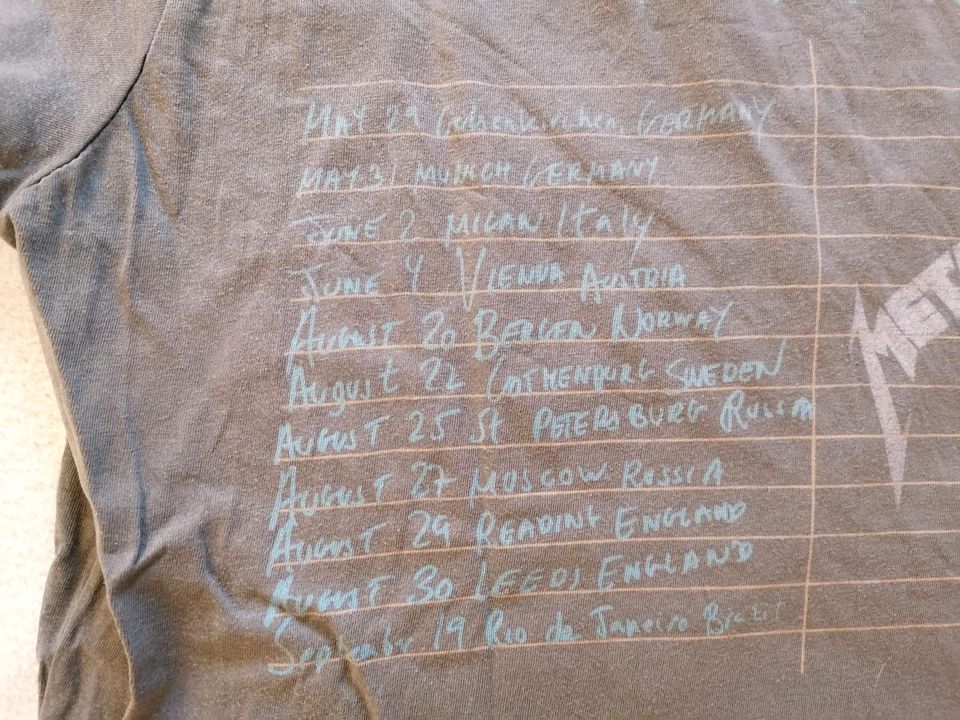 MAY 29 Gelsenkirchen, GERMANY
MAY 31 MUNICH GERMANY
JUNE 2 MILAN Italy
JUNE 4 VIENNA AUSTRIA
AUGUST 20 BERGEN NORWAY
AUGUST 22 GOTHENBURG SWEDEN
AUGUST 25 St PETERSBURG RUSSIA
AUGUST 27 MOSCOW RUSSIA
AUGUST 29 READING ENGLAND
AUGUST 30 LEEDS ENGLAND
September 19 Rio de Janeiro Brazil